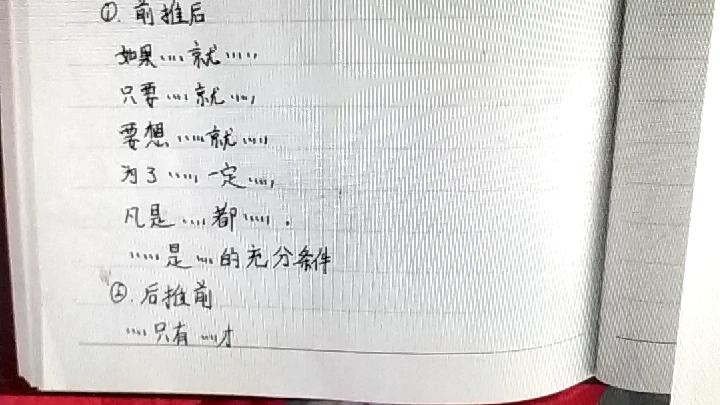 ①. 前推后
如果....就.....
只要....就....,
要想.....就....,
为了.....,一定....,
凡是....都.....
.....是....的充分条件
②.后推前
....只有....才